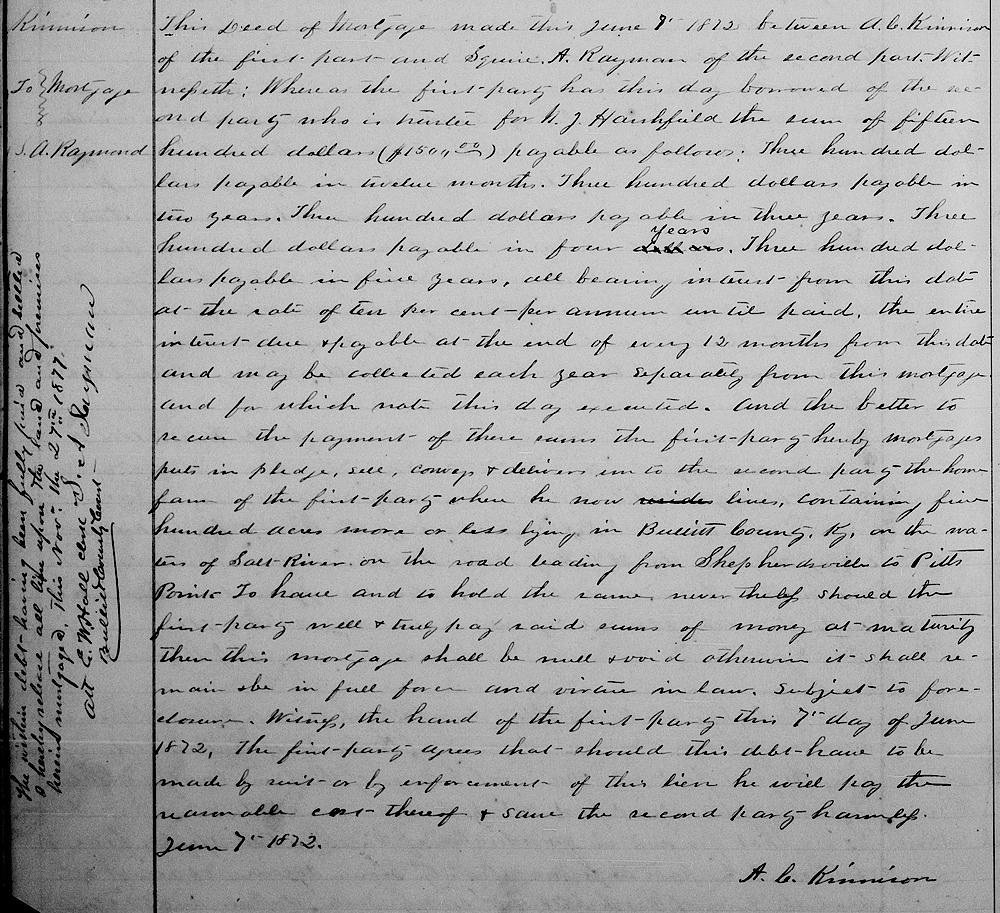 Kinnison
To } Mortgage
S. A. Raymond
This Deed of Mortgage made this June 7th 1872 between A. C. Kinnison
of the first party and Squire A. Rayman of the second part. Wit-
nesseth: Whereas the first party has this day borrowed of the se-
ond party who is trustee for W. J. Harshfield the sum of fifteen
hundred dollars ($1500,00) payable as follows: Three hundred dol-
lars payable in twelve months. Three hundred dollars payable in
two years. Three hundred dollars payable in three years. Three
hundred dollars payable in four dollars years. Three hundred dol-
lars payable in five years, all bearing interest from this date
at the rate of ten per cent per annum until paid, the entire
interest due & payable at the end of every 12 months from this date
and may be collected each year separately from this mortgage
and for which note this day executed. And the better to
secure the payment of these sums the first party hereby mortgages
puts in pledge, sell, conveys & delivers unto the second party the home
farm of the first party where he now lives, containing five
hundred acres more or less lying in Bullitt County, Ky, on the wa-
ters of Salt River on the road leading from Shepherdsville to Pitts
Point. To have and to hold the same, nevertheless should the
first party well & truly pay said sums of money at maturity
then this mortgage shall be null & void otherwise it shall re-
main & be in full force and virtue in law. Subject to fore-
closure. Witness, the hand of the first party this 7th day of June
1872, The first party agrees that should this debt have to be
made by suit or by enforcement of this lien he will pay the
reasonable cost thereof & save the second party harmless.
June 7th 1872.
A. C. Kinnison
The within debt having been fully paid and settled
I hereby release all lien upon the land and premises
herein mortgaged. This Nov. the 27th 1877.
S. A. Rayman
Att C. W. Hall clerk
Bullitt County Court